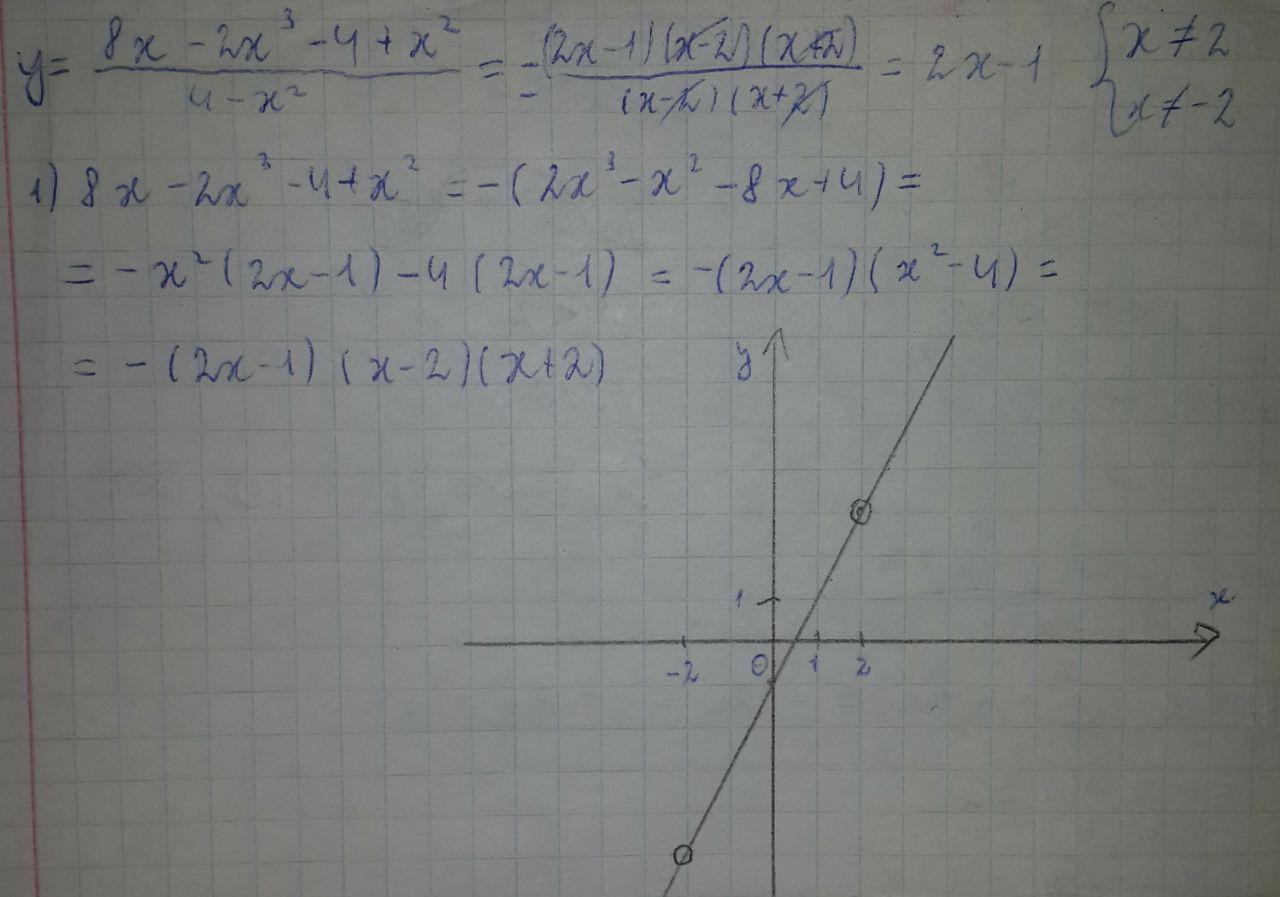 y = (8x - 2x³ - 4 + x²)/(4 - x²) = -(2x-1)(x-2)(x+2)/-(x-2)(x+2) = 2x-1 { x ≠ 2 x ≠ -2
1) 8x - 2x³ - 4 + x² = -(2x³ - x² - 8x + 4) =
= - x² (2x-1) - 4 (2x-1) = -(2x-1)(x² - 4) =
= - (2x-1) (x-2)(x+2)
y
1
x
-2 0 1 2